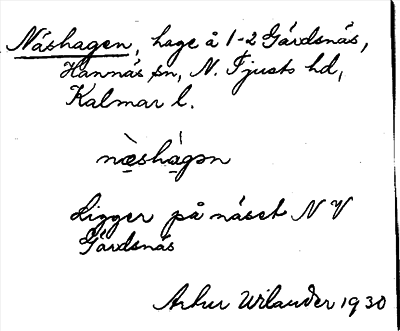 Näshagen, hage å 1-2 Gärdsnäs,
Hannäs sn, N. Tjusts hd,
Kalmar l.
næ̀shágən
Ligger på näset N V
Gärdsnäs
Artur Wilander 1930